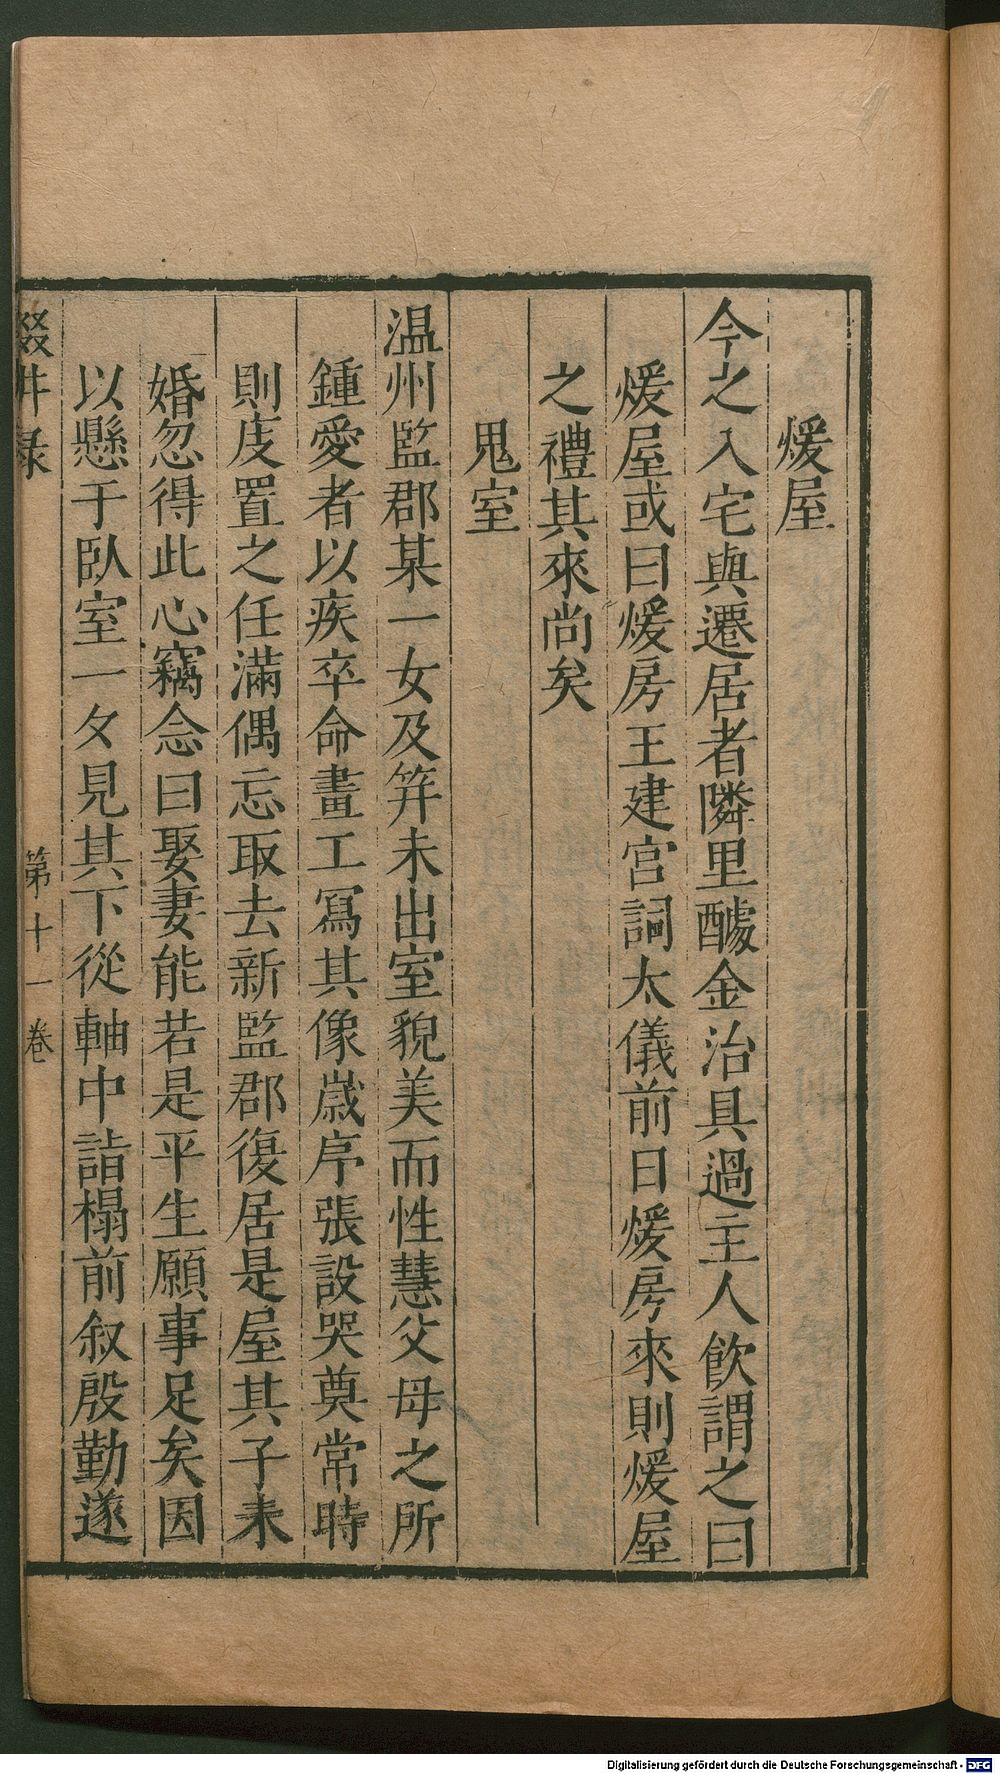 煖屋
今之入宅與遷居者隣里醵金治具過主人飲謂之曰
煖屋或曰煖房王建宮詞太儀前日煖房來則煖屋
之禮其來尚矣
鬼室
温州監郡某一女及笄未出室貌美而性慧父母之所
鍾愛者以疾卒命畫工寫其像歲序張設哭奠常時
則庋置之任滿偶忘取去新監郡復居是屋其子未
婚忽得此心竊念曰娶妻能若是平生願事足矣因
以懸于臥室一夕見其下從軸中詣榻前叙殷勤遂
輟耕録 第十一卷
Digitalisierung gefördert durch die Deutsche Forschungsgemeinschaft - DFG